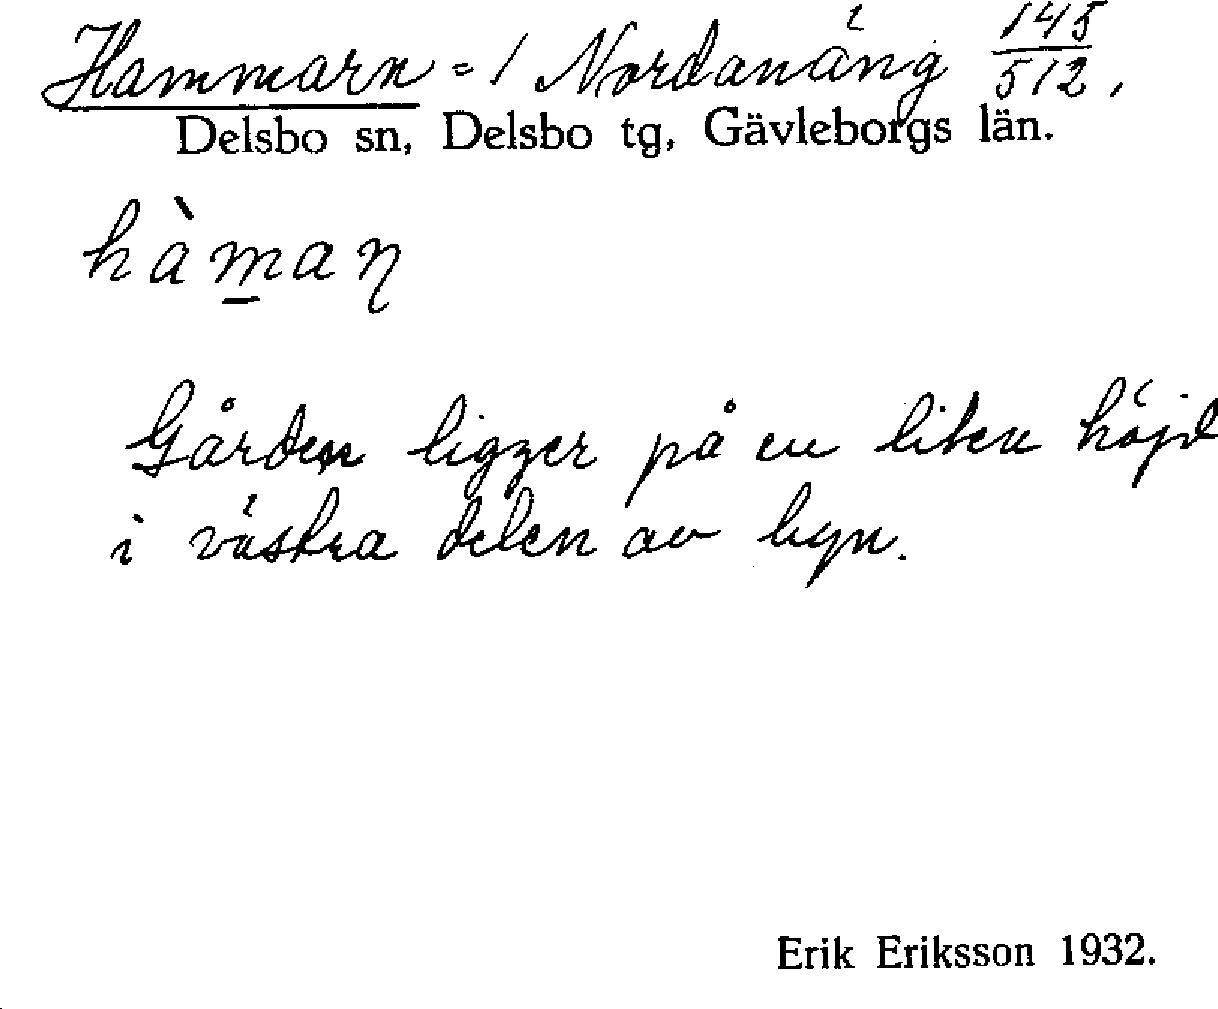 Hammarn = 1 Nordanäng 145/512.
Delsbo sn, Delsbo tg, Gävleborgs län.
hàm̱aŋ
Gården ligger på en liten höjd
i västra delen av byn.
Erik Eriksson 1932.